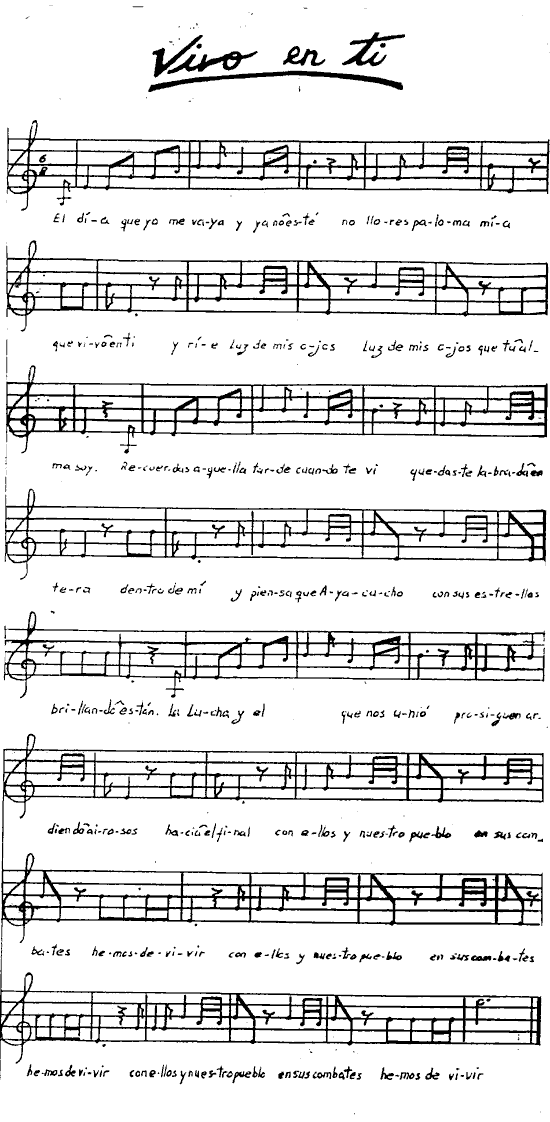 Vivo en ti
6
8
El dí-a que yo me va-ya y ya no es-té no llo-res pa-lo-ma mí-a
que vi-vo en ti y rí-e luz de mis o-jos luz de mis o-jos que tu al-
ma soy. Re-cuer-das a-que-lla tar-de cuan-do te vi que-das-te la-bra-da en
te-ra den-tro de mí y pien-sa que A-ya-cu-cho con sus es-tre-llas
bri-llan-do es-tán. La Lu-cha y el que nos u-nió pro-si-guen ar-
diendo ai-ro-sos ha-cia el fi-nal con e-llos y nues-tro pue-blo en sus com-
ba-tes he-mos-de-vi-vir con e-llos y nues-tro pue-blo en sus com-ba-tes
he-mos de vi-vir con e-llos y nues-tro pueblo en sus combates he-mos de vi-vir